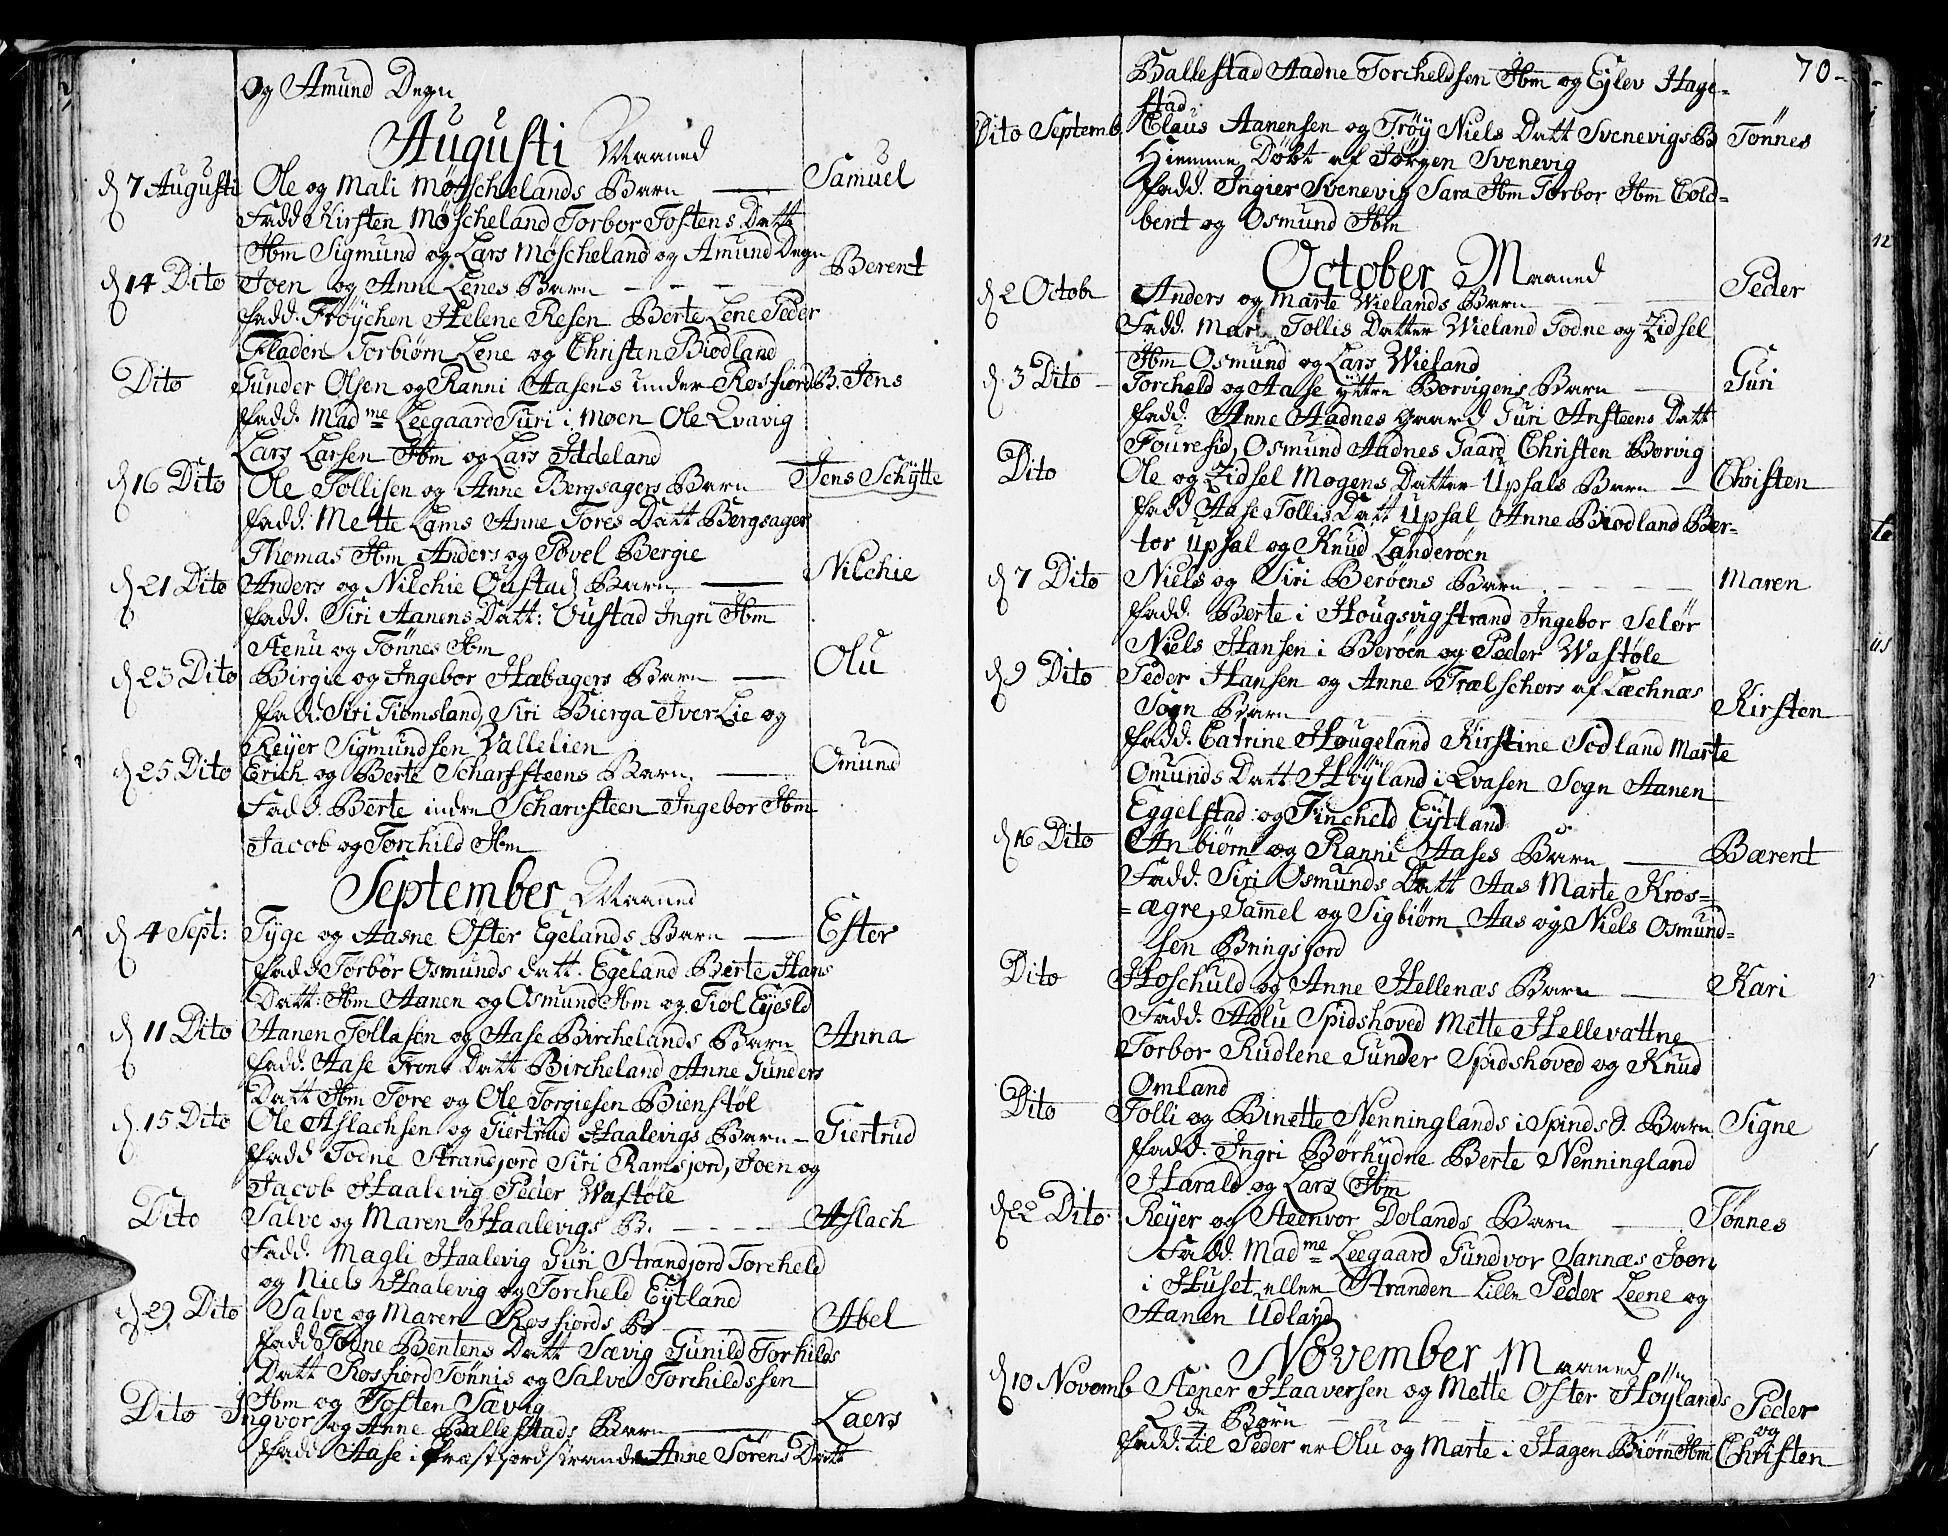 og Amund Degn
Augusti Maaned
d 7 Augusti Ole og Mali Møschelands Barn — Samuel
Fadd Kirsten Møscheland Torbor Tostens Datt
Ibm Sigmund og Lars Møscheland og Amund Degn
d 14 Dito Joen og Anne Lenes Barn - - - Berent
Fadd. Frøychen Helene Resen Berte Lene Peder
Fladen Torbiørn Lene og Christen Biødland
Dito Gunder Olsen og Ranni Aasens under Rosfiord B. Jens
Fadd. Mad me Leegaard Turi i Moen Ole Qvavig
Lars Larsen Ibm og Lars Iddeland
d 16 Dito Ole Tollisen og Anne Bergsagers Barn Jens Schytte
Fadd. Mette Lams Anne Tores Datt Bergsager
Thomas Ibm Anders og Povel Bergie
d 21 Dito Anders og Nilchie Oustad Barn — Nilchie
Fadd. Siri Aanens Datt: Oustad Ingri Ibm
Stenu og Tønnes Ibm
d 23 Dito Birgie og Ingebor Hæbagers Barn — Olu
Fadd. Siri Tiomsland, Siri Bierga Iver Lie og
Reyer Sigmundsen Vallelien
d 25 Dito Erich og Berte Scharfsteens Barn. — Omund
Fadd. Berte indre Scharfsteen Ingebor Ibm
Jacob og Torchild Ibm
September Maaned
d 4 Sept: Tyge og Aasne Øster Egelands Barn — Ester
Fadd Torbør Osmunds datt. Egeland Berte Hans
Datt: Ibm Aanen og Osmund Ibm og Tiøl Eyesld
d 11 Dito Aanen Tollasøn og Aase Birchelands Barn Anna
Fadd. Aase Trons Datt Bircheland Anne Gunders
Datt Ibm Tore og Ole Torgiesen Bienstøl
d. 15 Dito Ole Aslachsen og Giertrud Haalevigs Barn — Giertrud
Fadd Todne Strandjord Siri Ramsjord, Joen og
Jacob Haalevig Peder Wastøle
Dito Salve og Maren Haalevigs B. - - - Aslach
Fadd. Magli Haalevig Guri Strandjord Torcheld
og Niels Haalevig og Torcheld Eytland
d 29 Dito Salve og Maren Rosfiords B. Abel
Fadd Todne Bentens Datt Sævig Gunild Torhilds
Datt Rosfiord Tønnis og Salve Torchildssen
Ibm og Tosten Sævig
Dito Ingvor og Anne Ballestads Barn — Laers
Fadd Aase i Præstfjordstranden Anne Sørens Datt
70-
Ballestad Aadne Torcheldsen Ibm og Eylev Hage-
stad.
Dito Septemb. Claus Aanensen og Trøy Niels Datt Svenevigs B Tønnes
Hiemme Døbt af Jørgen Svenevig
Fadd. Ingier Svenevig Sara Ibm Torbor Ibm Cold-
bent og Osmund Ibm
October Maaned
d 2 Octobr Anders og Marte Wielands Barn - - - Peder
Fadd. Mar Tollis Datter Wieland Todne og Zidsel
Ibm Osmund og Lars Wieland
d. 3 Dito - Torcheld og Aase yttre Borvigens Barn — Guri
Fadd. Anne Aadnes gaard Guri Ansteens Datt
Fouresid, Osmund Aadnes Gaard Christen Borvig
Dito Ole og Zidsel Mogens Datter Upsals Barn — Christen
Fadd Aase Tollis Datt Upsal Anne Biodland Ber-
tor Upsal og Knud Landerøen
d 7 Dito Niels og Siri Berøens Barn. - - - Maren
Fadd. Berte i Hougsvigstrand Ingebor Selør
Niels Hansen i Berøen og Peder Wastøle
d 9 Dito Peder Hansen og Anne Trælschers af Læchnæs
Sogn Barn Kirsten
Fadd. Catrine Hougeland Kirstine Sodland Marte
Omunds Datt Høyland i Qvasen Sogn Aanen
Eggelstad og Fincheld Eytland
d 16 Dito Anbiørn og Ranni Aases Barn — Bærent
Fadd. Siri Osmunds Datt Aas Marte Kros-
=ægre, Samel og Sigbiørn Aas og Niels Osmund=
sen Bringsjord
Dito Hoschuld og Anne Hellenæs Barn — Kari
Fadd. Aslu Spidshoved Mette Hellevattne
Torbor Rudlene Gunder Spidshoved og Knud
Omland
Dito Tolli og Binette Nenninglands i Spinds S. Barn Signe
Fadd. Ingri Børhydne Berte Nenningland
Harald og Lars Ibm
d 22 Dito. Reyer og Steenvor Dolands Barn — Tønnes
Fadd. Mad me Leegaard Gundvor Sannæs Joen
i Huset eller Stranden Lille Peder Leene og
Aanen Udland
November Maaned
d 10 Novemb Asner Haaversen og Mette Øster Høylands Peder
2 de Børn - - - og
Fadd. til Peder er Olu og Marte i Hagen Biørn Ibm Christen